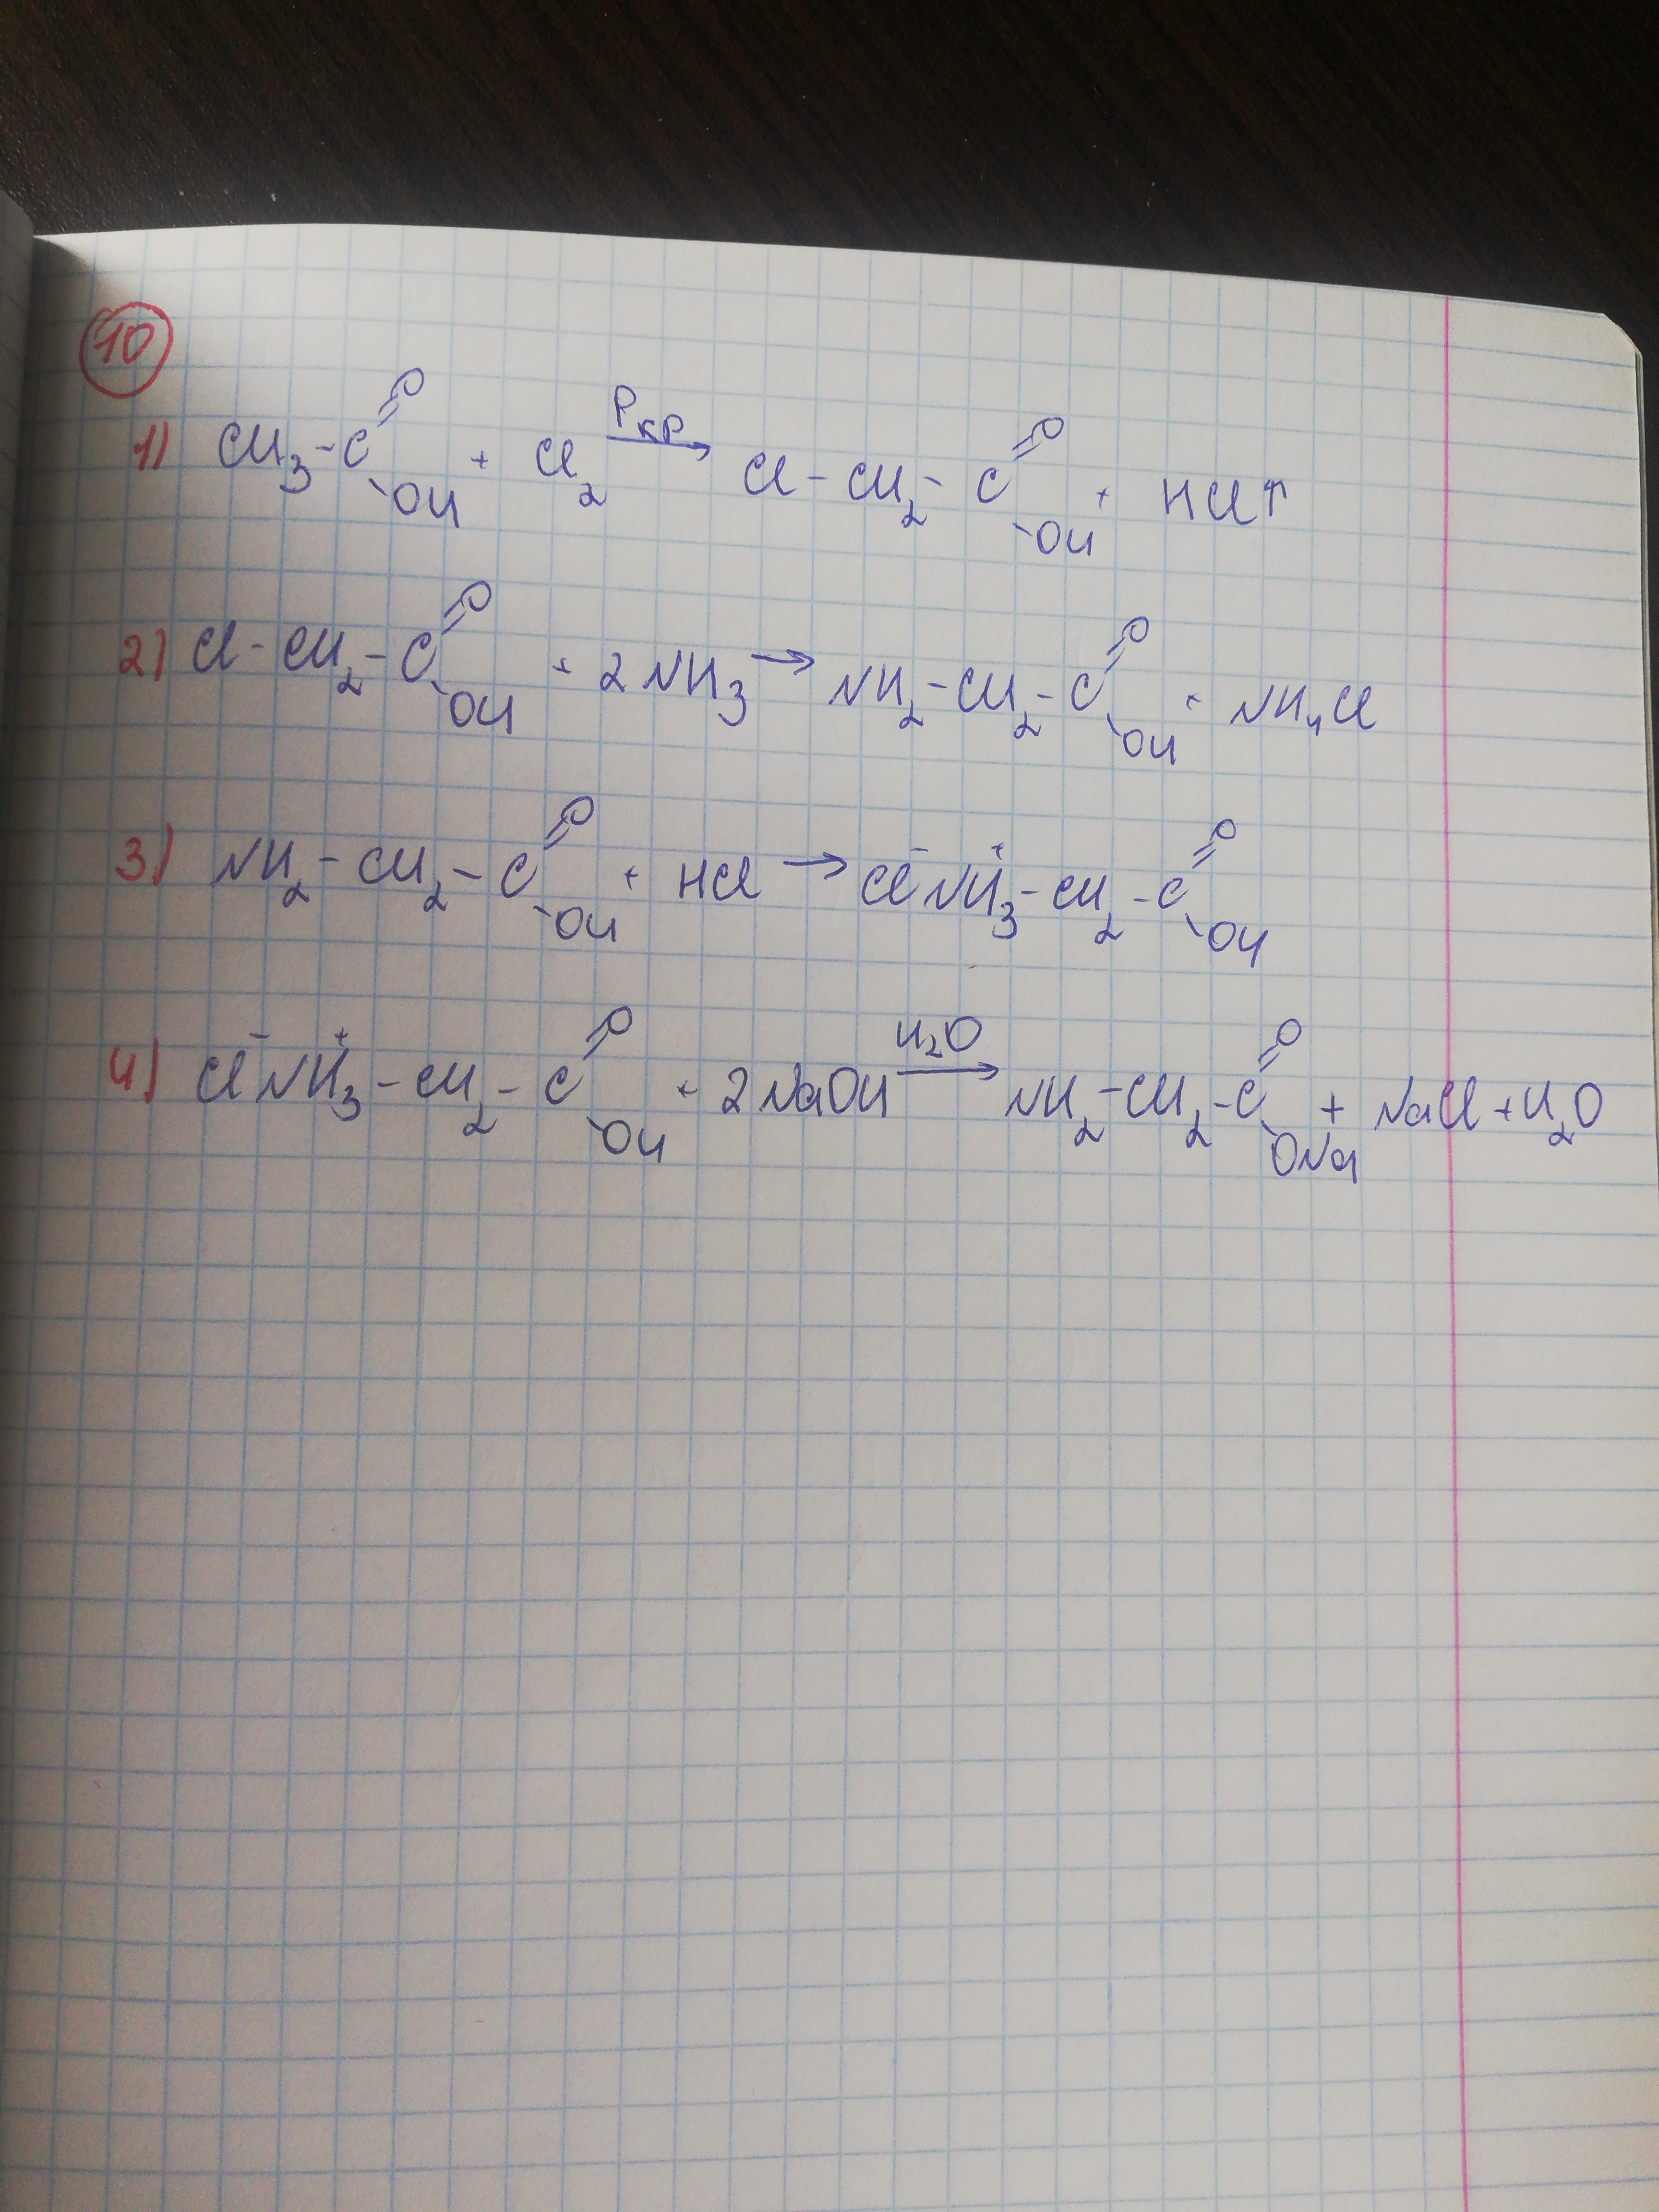 10
1) CH₃-C(=O)-OH + Cl₂ →(Pкр) Cl-CH₂-C(=O)-OH + HCl↑
2) Cl-CH₂-C(=O)-OH + 2NH₃ → NH₂-CH₂-C(=O)-OH + NH₄Cl
3) NH₂-CH₂-C(=O)-OH + HCl → Cl⁻NH₃⁺-CH₂-C(=O)-OH
4) Cl⁻NH₃⁺-CH₂-C(=O)-OH + 2NaOH →(H₂O) NH₂-CH₂-C(=O)-ONa + NaCl + H₂O